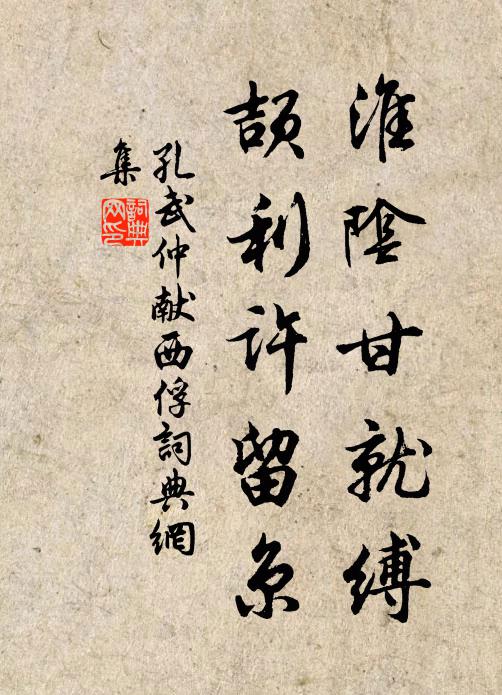 淮陰甘就縛
頡利許留京
孔武仲獻西俘詞典網
集
詞典網印